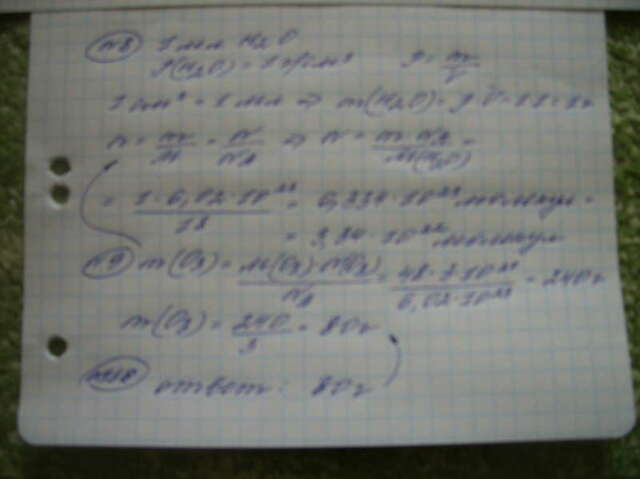 №8 1 мл H2O
ρ(H2O) = 1 г/см³ ρ = m/V
1 см³ = 1 мл ⇒ m(H2O) = ρ·V = 1·1 = 1г
n = m/M = N/NA ⇒ N = m·NA/M(H2O) =
= 1·6,02·10²³/18 = 0,334·10²³ молекул =
= 3,34·10²² молекул
№9 m(O3) = M(O3)·N(O3)/NA = 48·3·10²⁴/6,02·10²³ = 240г
m(O3) = 240/3 = 80г
ответ: 80г